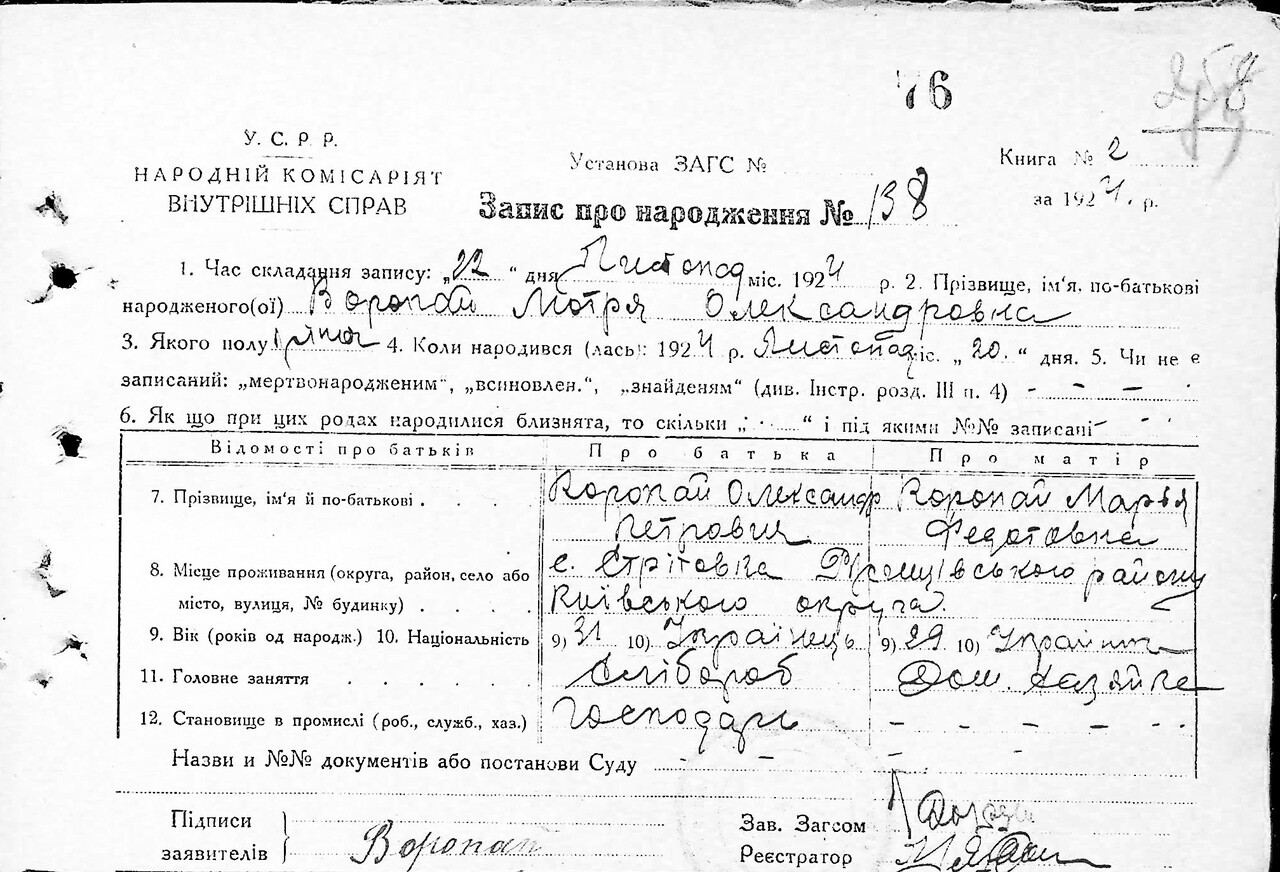 76
258
У. С. Р. Р.
НАРОДНІЙ КОМІСАРІЯТ
ВНУТРІШНІХ СПРАВ
Установа ЗАГС №
Книга № 2
за 1924 р.
Запис про народження № 138
1. Час складання запису: „22“ дня Листопад міс. 1924 р. 2. Прізвище, ім'я, по-батькові
народженого(ої) Воропай Мотря Олександровна
3. Якого полу жіноч 4. Коли народився (лась): 1924 р. Листопад міс. „20.“ дня. 5. Чи не є
записаний: „мертвонародженим“, „всиновлен.“, „знайденям“ (див. Інстр. розд. III п. 4) - - - -
6. Як що при цих родах народилися близнята, то скільки „ “ і під якими №№ записані -
Відомості про батьків Про батька Про матір
7. Прізвище, ім'я й по-батькові . . . . Воропай Олександр Воропай Марія
Петрович Федотовна
8. Місце проживання (округа, район, село або с. Стрітовка Ржищівського району
місто, вулиця, № будинку) . . . . Київського округа.
9. Вік (років од народж.) 10. Національність 9) 31 10) Українець 9) 29 10) Українка
11. Головне заняття . . . . . Хлібороб Дом. хазяйка
12. Становище в промислі (роб., служб., хаз.) Господарь - - - - -
Назви и №№ документів або постанови Суду - - - - -
Підписи
заявителів } Воропай
Зав. Загсом
Реєстратор